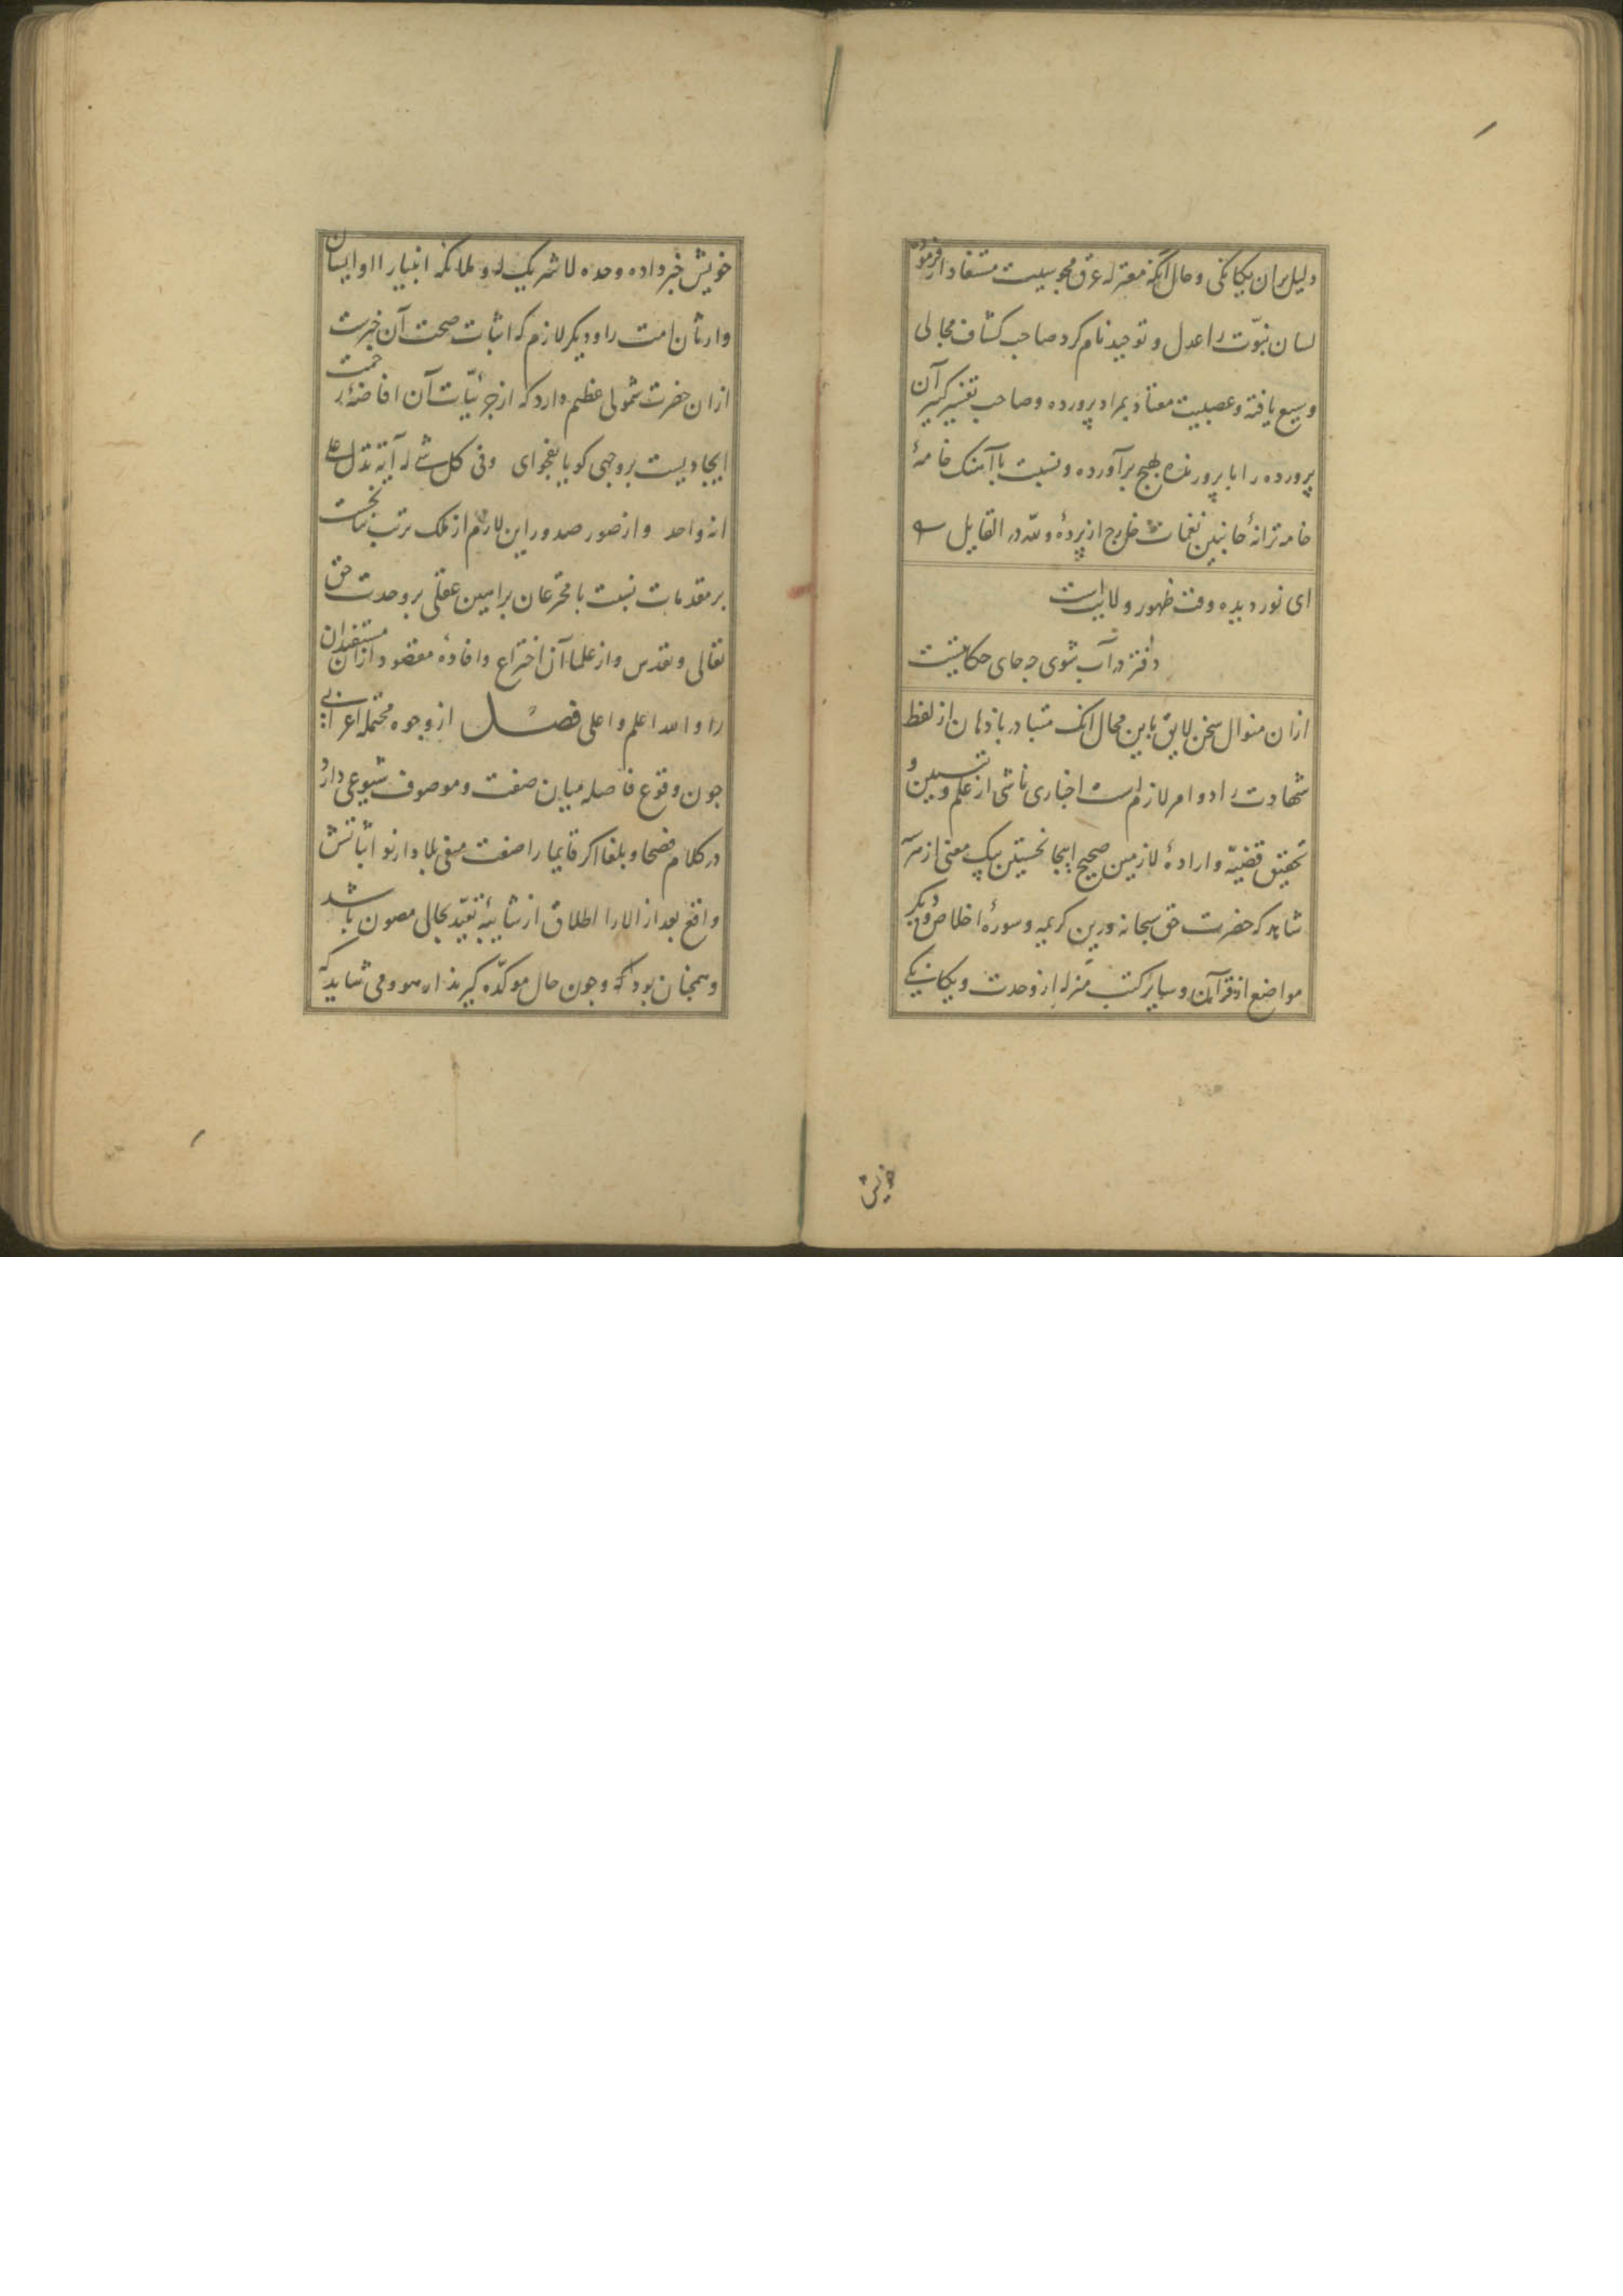 دلیل بران یکانکی و حال آنکه معتزله عرق مجوسیت مستفاد از فرموده
لسان نبوّت را عدل و توحید نام کرد صاحب کشاف مجالی
وسیع یافته و عصبیت معتاد بمراد پرورده و صاحب تفسیر کبیر آن
پرورده را با پرورنده بهیج برآورده و نسبت با آهنک خامهٔ
خامه ترانهٔ جانبین نغمات خارج از پرده و لله در القایل
ای نور دیده وقت ظهور ولایتست
دفتر در آب شوی چه جای حکایتست
ازان منوال سخن لایق باین محال انک متبادر باذهان از لفظ
شهادت را دو امر لازم است اخباری ناشی از علم و تبیین و
تحقیق قضیّه و ارادهٔ لازمین صحیح اینجا نخستین بیک معنی از هر
شاید که حضرت حق سبحانه درین کریمه و سورهٔ اخلاص و دیکر
مواضع از قرآن و سایر کتب منزله از وحدت و یکانکی
خویش
خویش خبر داده وحده لا شریک له و ملائکه انبیا را و ایشان
وارثان امت را و دیکر لازم که اثبات صحت آن خبرست
ازان حضرت شمولی عظیم دارد که از جزئیّات آن افاضهٔ رحمت
ایجادیست بر وجهی کویا بفحوای و فی کل شئ له آیة تدل علی
انه واحد و از صور صدور این لازم از ملک ترتب نخست
بر مقدمات نسبت با مخترعان براهین عقلی بر وحدت حق
تعالی و تقدس و از علما آن اختراع و افادهٔ مقصود ازان مستفیدان
را و الله اعلم و اعلی فصل از وجوه محتمله اعرابی
چون وقوع فاصله میان صفت و موصوف شیوعی دارد
در کلام فصحا و بلغا اکر قایما را صفت منفی بلا دارند اثباتش
واقع بعد از الا را اطلاق از شایبهٔ تقیّد بحالی مصون باشد
و همچنان بود که چون حال موکّده کیرند از هو و می شاید که